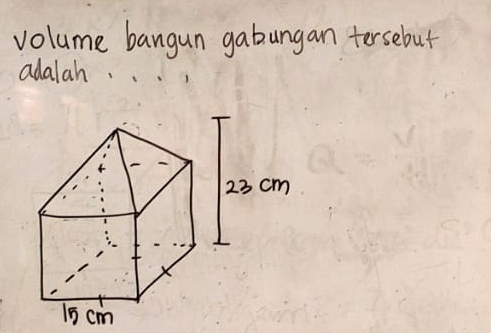 volume bangun gabungan tersebut
adalah . . . .
23 cm
15 cm